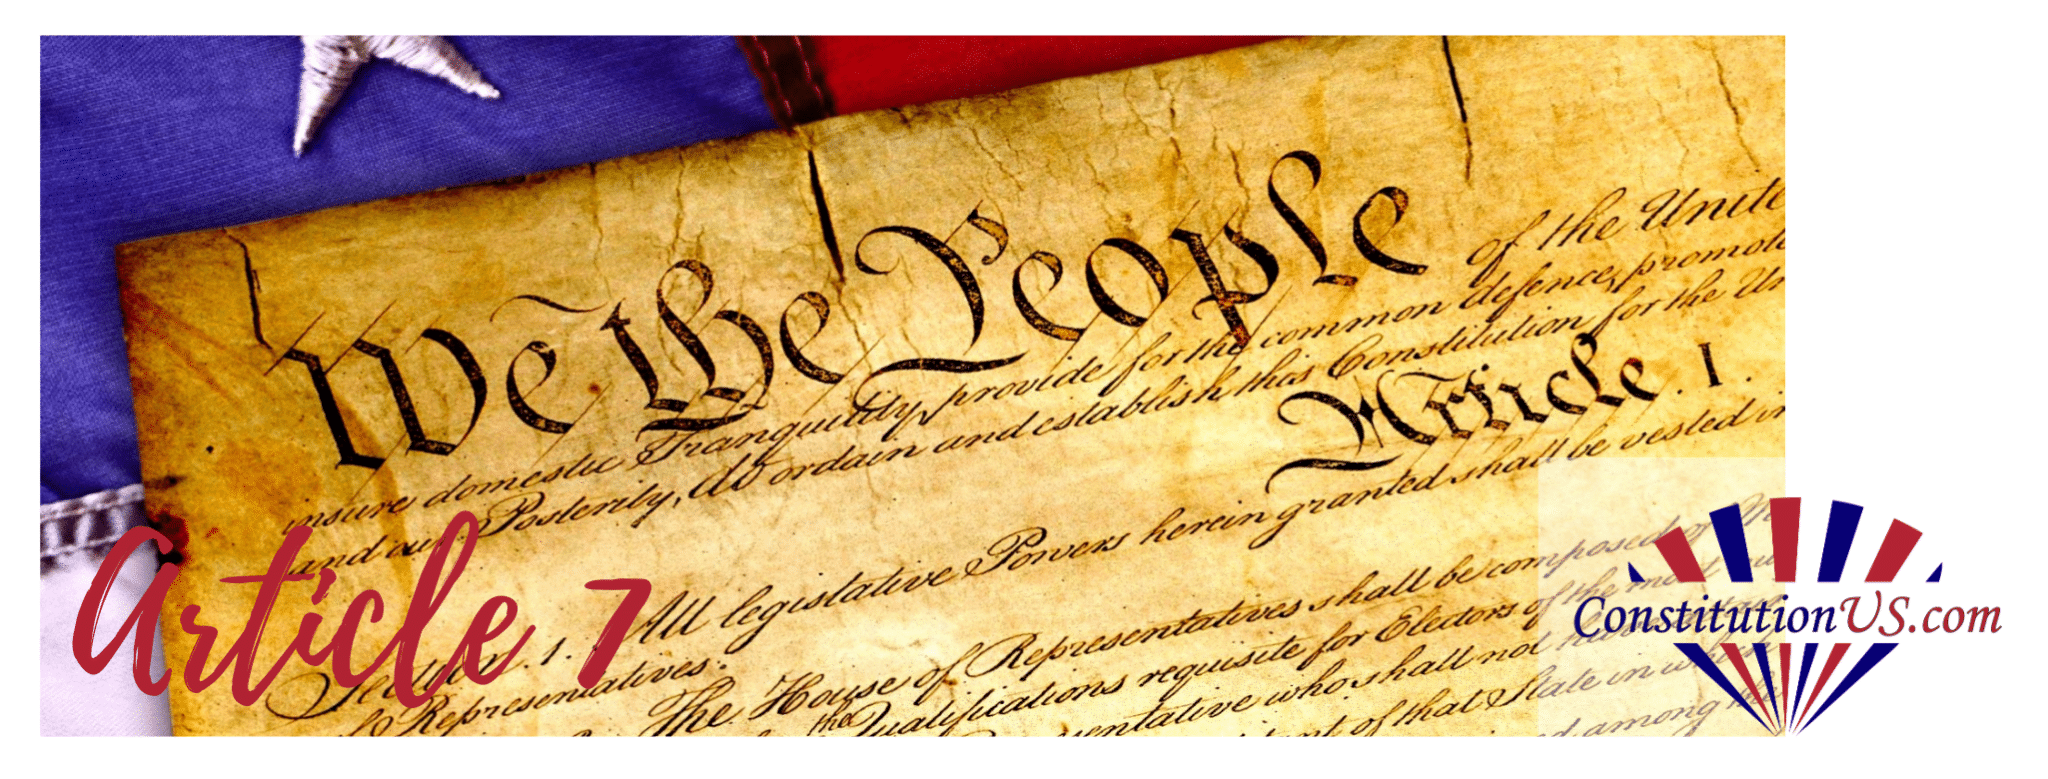 We the People
of the Unite
insure domestic Tranquility, provide for the common defence, promote
and our Posterity, do ordain and establish this Constitution for the Un
Article. I.
Section. 1. All legislative Powers herein granted shall be vested in
of Representatives.
The House of Representatives shall be composed of
the
Qualifications requisite for Electors of the most nu
who shall not
of that State in which
among the
Article 7
ConstitutionUS.com